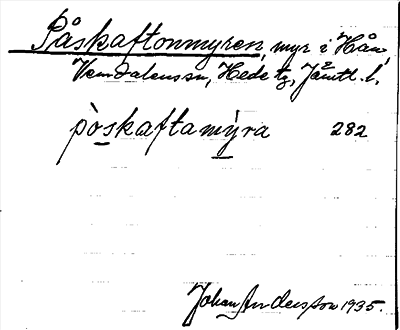 Påskaftonmyren, myr i Hån,
Vemdalens sn, Hede tg, Jämtl. l.
pòskaftamỳra 282
Johan Andersson 1935.